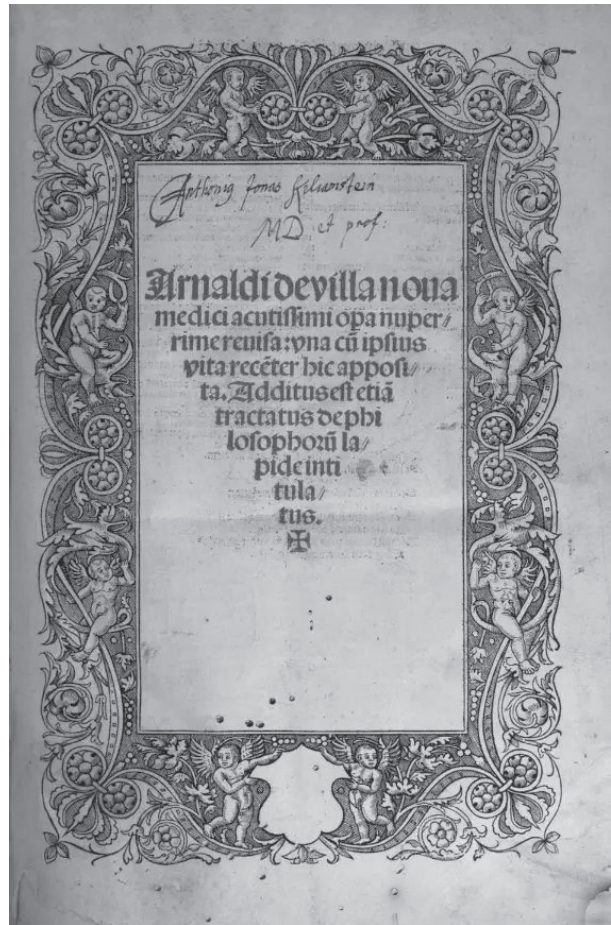 Anthonig Jonas Kilianstein
MD et prof:
Arnaldi de villa noua
medici acutissimi oꝑa nuper⸗
rime reuisa: vna cū ipsius
vita recēter hic apposi⸗
ta. Additus est etiā
tractatus de phi
losophorū la⸗
pide inti
tula⸗
tus.
✠